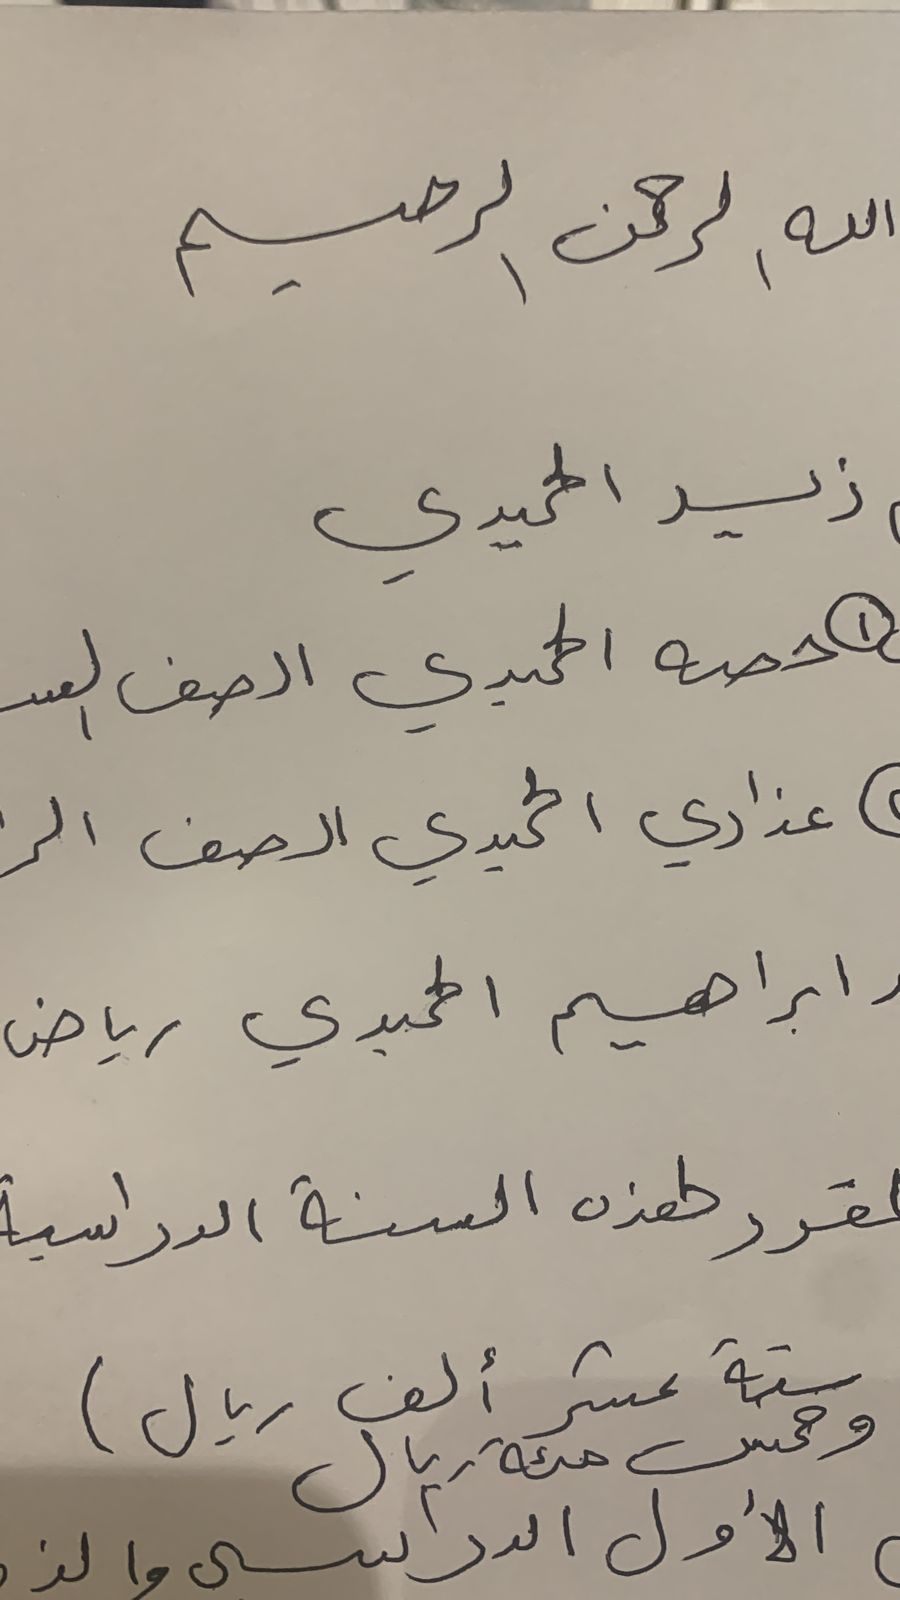 الله الرحمن الرحيم
زيد الحميدي
① حصه الحميدي الصف
عذاري الحميدي الصف
ابراهيم الحميدي رياض
لهذه السنة الدراسية
ستة عشر ألف ريال )
وخمس مئة ريال
الأول الدراسي